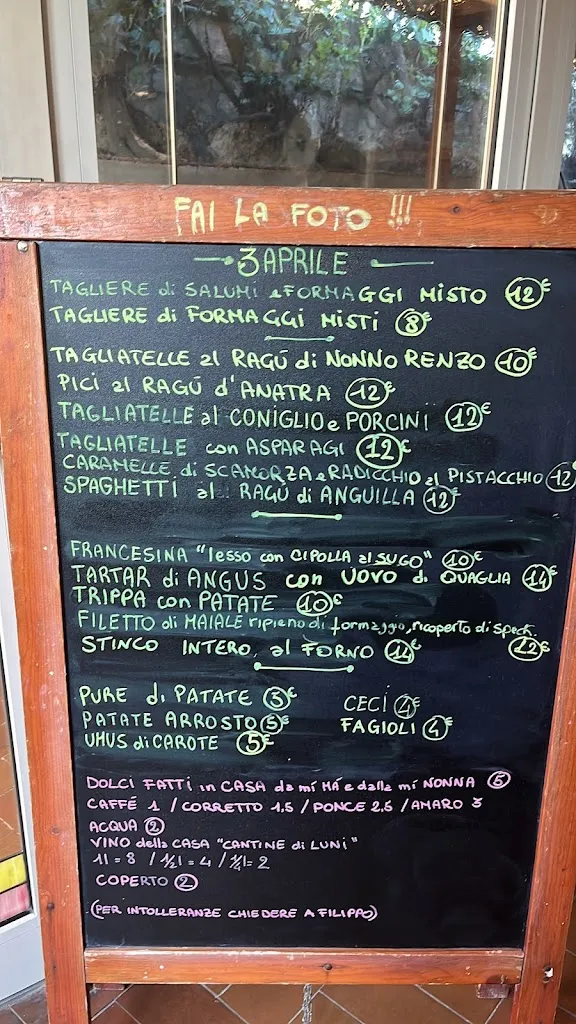 FAI LA FOTO !!!
3 APRILE
TAGLIERE di SALUMI e FORMAGGI MISTO 12€
TAGLIERE di FORMAGGI MISTI 8€
TAGLIATELLE al RAGÚ di NONNO RENZO 10€
PICI al RAGÚ d'ANATRA 12€
TAGLIATELLE al CONIGLIO e PORCINI 12€
TAGLIATELLE con ASPARAGI 12€
CARAMELLE di SCAMORZA e RADICCHIO al PISTACCHIO 12€
SPAGHETTI al RAGÚ di ANGUILLA 12€
FRANCESINA "lesso con CIPOLLA al SUGO" 10€
TARTAR di ANGUS con UOVO di QUAGLIA 14€
TRIPPA con PATATE 10€
FILETTO di MAIALE ripieno di formaggio, ricoperto di speck. 12€
STINCO INTERO, al FORNO €
PURE di PATATE €
CECI 4€
PATATE ARROSTO 5€
FAGIOLI 4€
UMUS di CAROTE 5€
DOLCI FATTI in CASA da mí MÁ e dalla mí NONNA 5
CAFFÉ 1 / CORRETTO 1,5 / PONCE 2,5 / AMARO 3
ACQUA 2
VINO della CASA "CANTINE di LUNI"
1l = 8 / 1/2l = 4 / 1/4l = 2
COPERTO 2
(PER INTOLLERANZE CHIEDERE A FILIPPO)